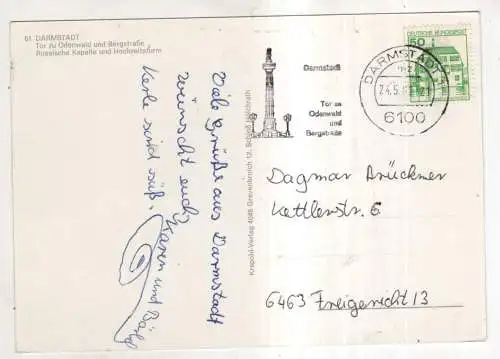 61 DARMSTADT
Tor zu Odenwald und Bergstraße
Russische Kapelle und Hochzeitsturm
Viele Grüße aus Darmstadt
wünscht euch
Karen und
Kerle sind süß.
Krapohl-Verlag 4048 Grevenbroich 12, Schloß Hülchrath
Darmstadt
Tor zu
Odenwald
und
Bergstraße
DARMSTADT
24.5.
6100
DEUTSCHE BUNDESPOST
50
Dagmar Brückner
Kettlerstr. 6
6463 Freigericht 13